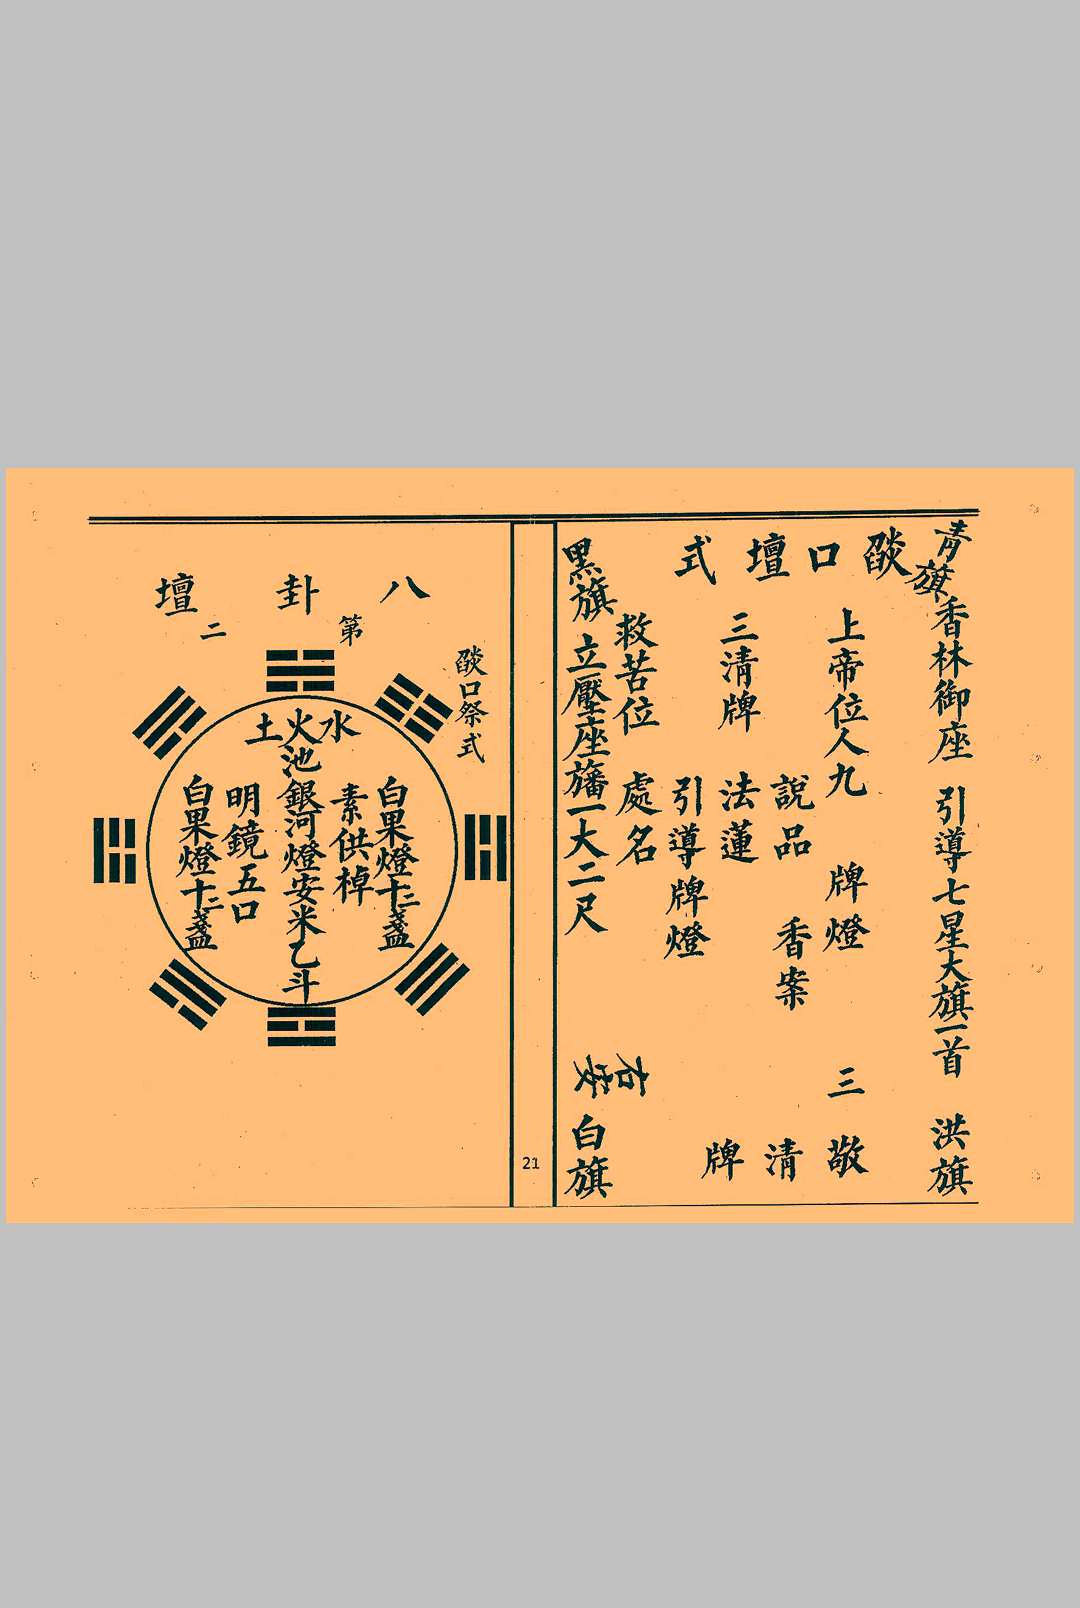 青旗香林御座 引導七星大旗一首 洪旗
燄口壇式
上帝位人九 牌燈 三敬
說品 香案 清
三清牌 法蓮 牌
引導牌燈
救苦位 處名 右安
黑旗 立壓座旛一大二尺 白旗
21
燄口祭式
八卦壇
第二
水火土
白果燈十二盞
素供棹
池銀河燈安米乙斗
明鏡五口
白果燈十二盞